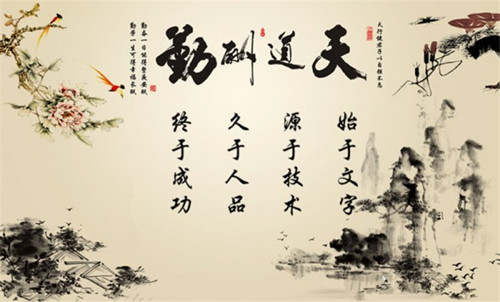 天道酬勤
天行健君子以自强不息
勤劳一生可得幸福长眠
始于文字
源于技术
久于人品
终于成功